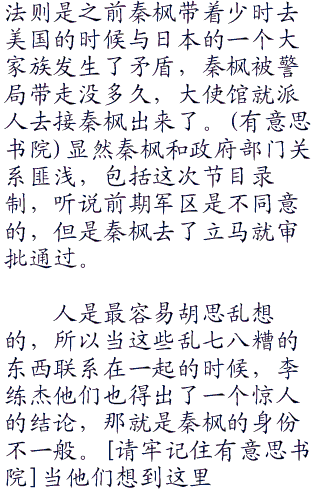 法则是之前秦枫带着少时去
美国的时候与日本的一个大
家族发生了矛盾，秦枫被警
局带走没多久，大使馆就派
人去接秦枫出来了。(有意思
书院)显然秦枫和政府部门关
系匪浅，包括这次节目录
制，听说前期军区是不同意
的，但是秦枫去了立马就审
批通过。
人是最容易胡思乱想
的，所以当这些乱七八糟的
东西联系在一起的时候，李
练杰他们也得出了一个惊人
的结论，那就是秦枫的身份
不一般。[请牢记住有意思书
院]当他们想到这里